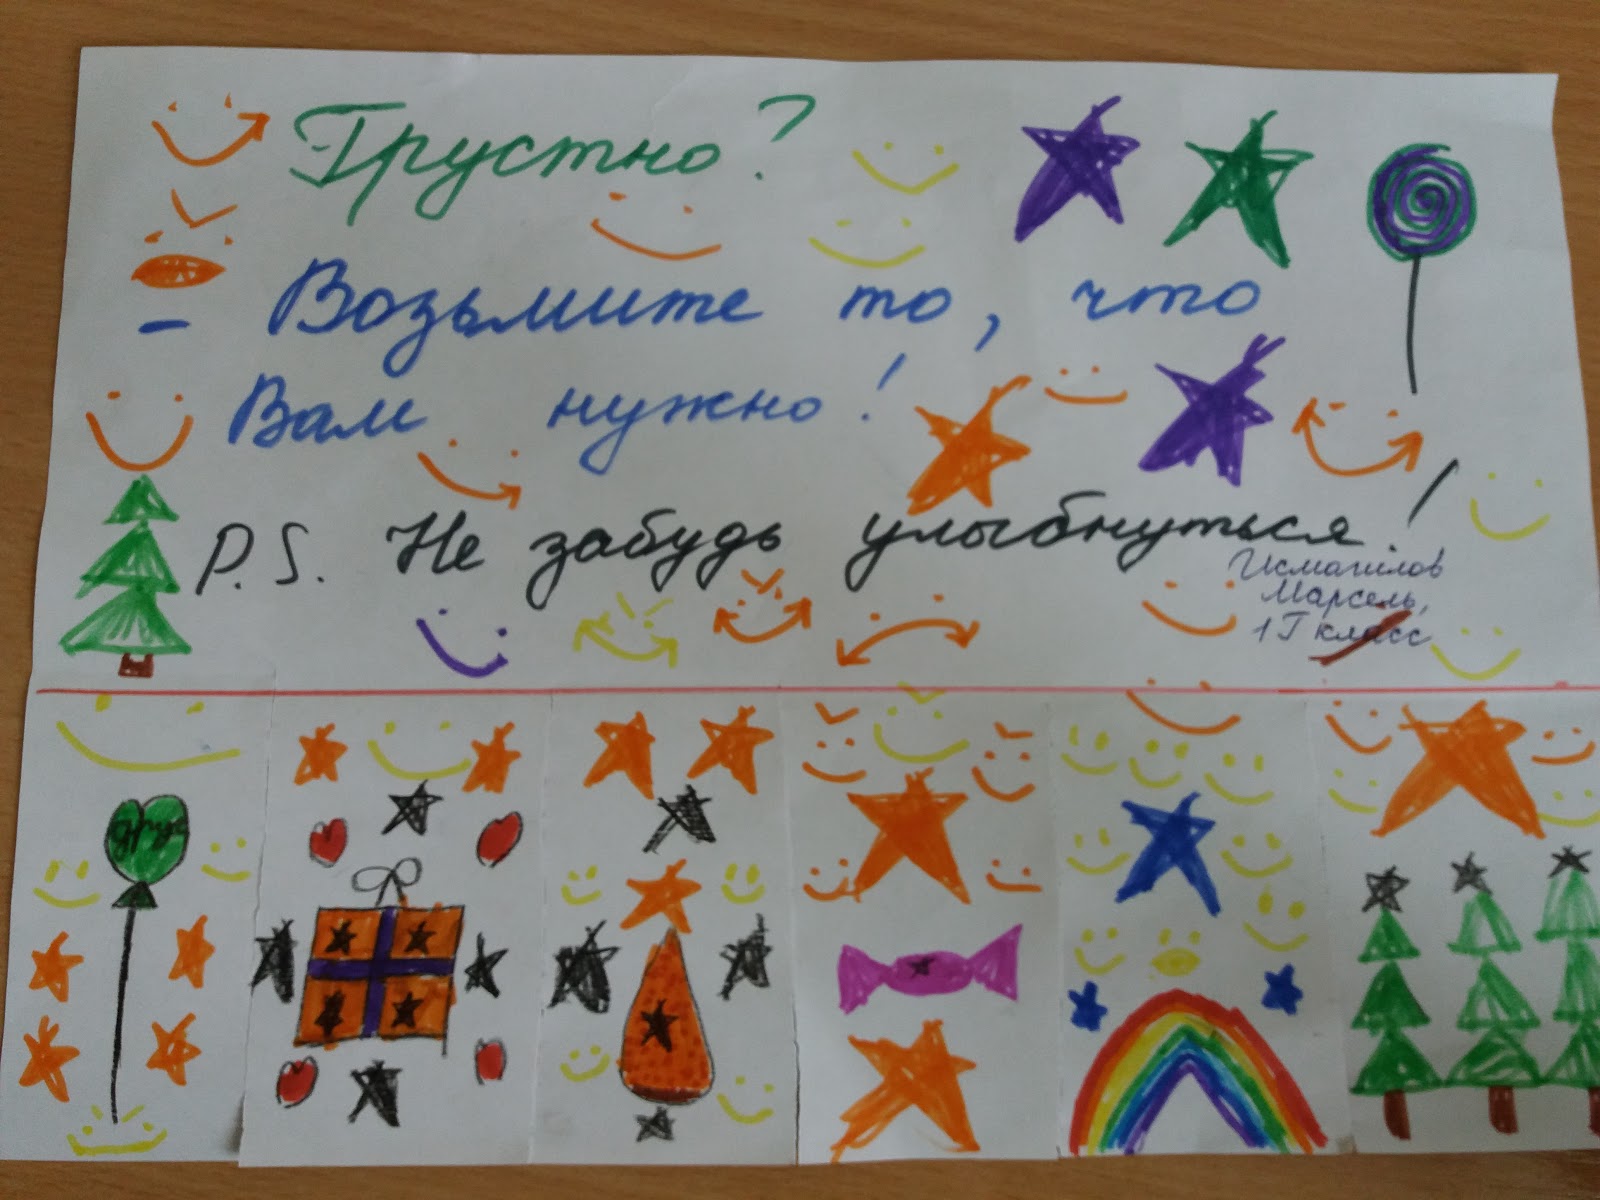 Грустно?
- Возьмите то, что
Вам нужно!
P.S. Не забудь улыбнуться!
Исмагилов
Марсель,
1Г класс